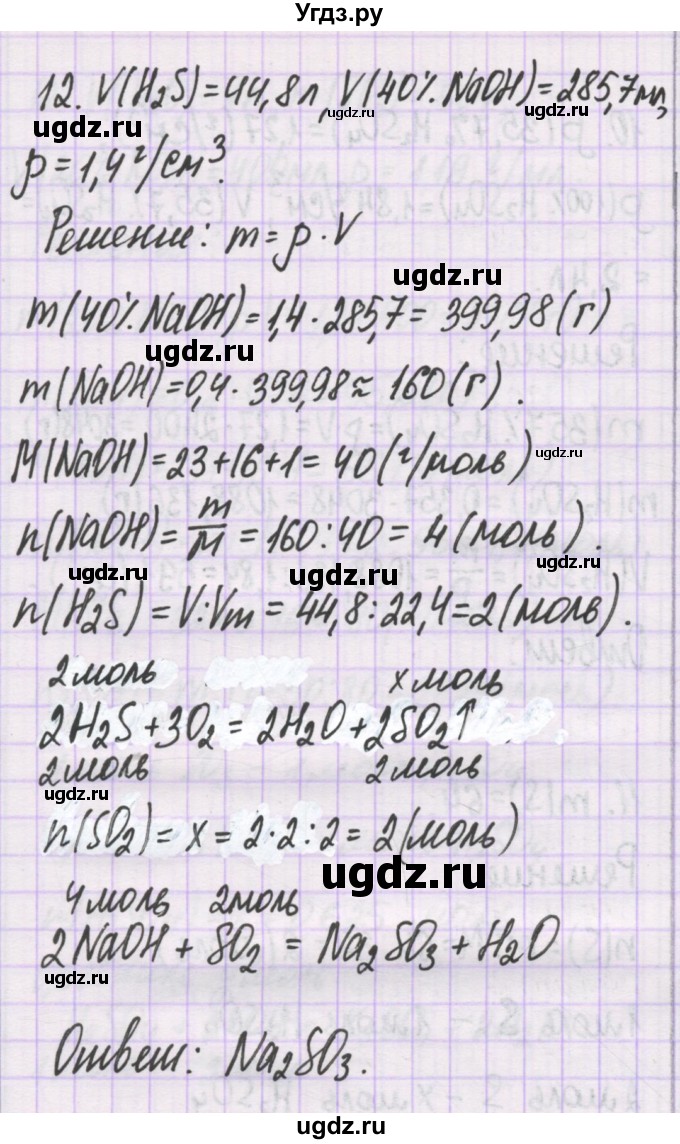 Угдз.ру
12. V(H₂S)=44,8л, V(40% NaOH)=285,7мл,
ugdz.ru ugdz.ru ugdz.ru
ρ=1,4г/см³.
Решение: m=ρ·V
ugdz.ru
m(40% NaOH)=1,4·285,7=399,98(г)
ugdz.ru
m(NaOH)=0,4·399,98≈160(г).
M(NaOH)=23+16+1=40(г/моль)
ugdz.ru ugdz.ru
n(NaOH)=m/M=160:40=4(моль).
ugdz.ru ugdz.ru ugdz.ru
n(H₂S)=V:Vm=44,8:22,4=2(моль).
2моль xмоль
ugdz.ru
2H₂S+3O₂=2H₂O+2SO₂↑
2моль 2моль
ugdz.ru
n(SO₂)=x=2·2:2=2(моль)
ugdz.ru
4моль 2моль
2NaOH+SO₂=Na₂SO₃+H₂O
ugdz.ru
Ответ: Na₂SO₃.
ugdz.ru